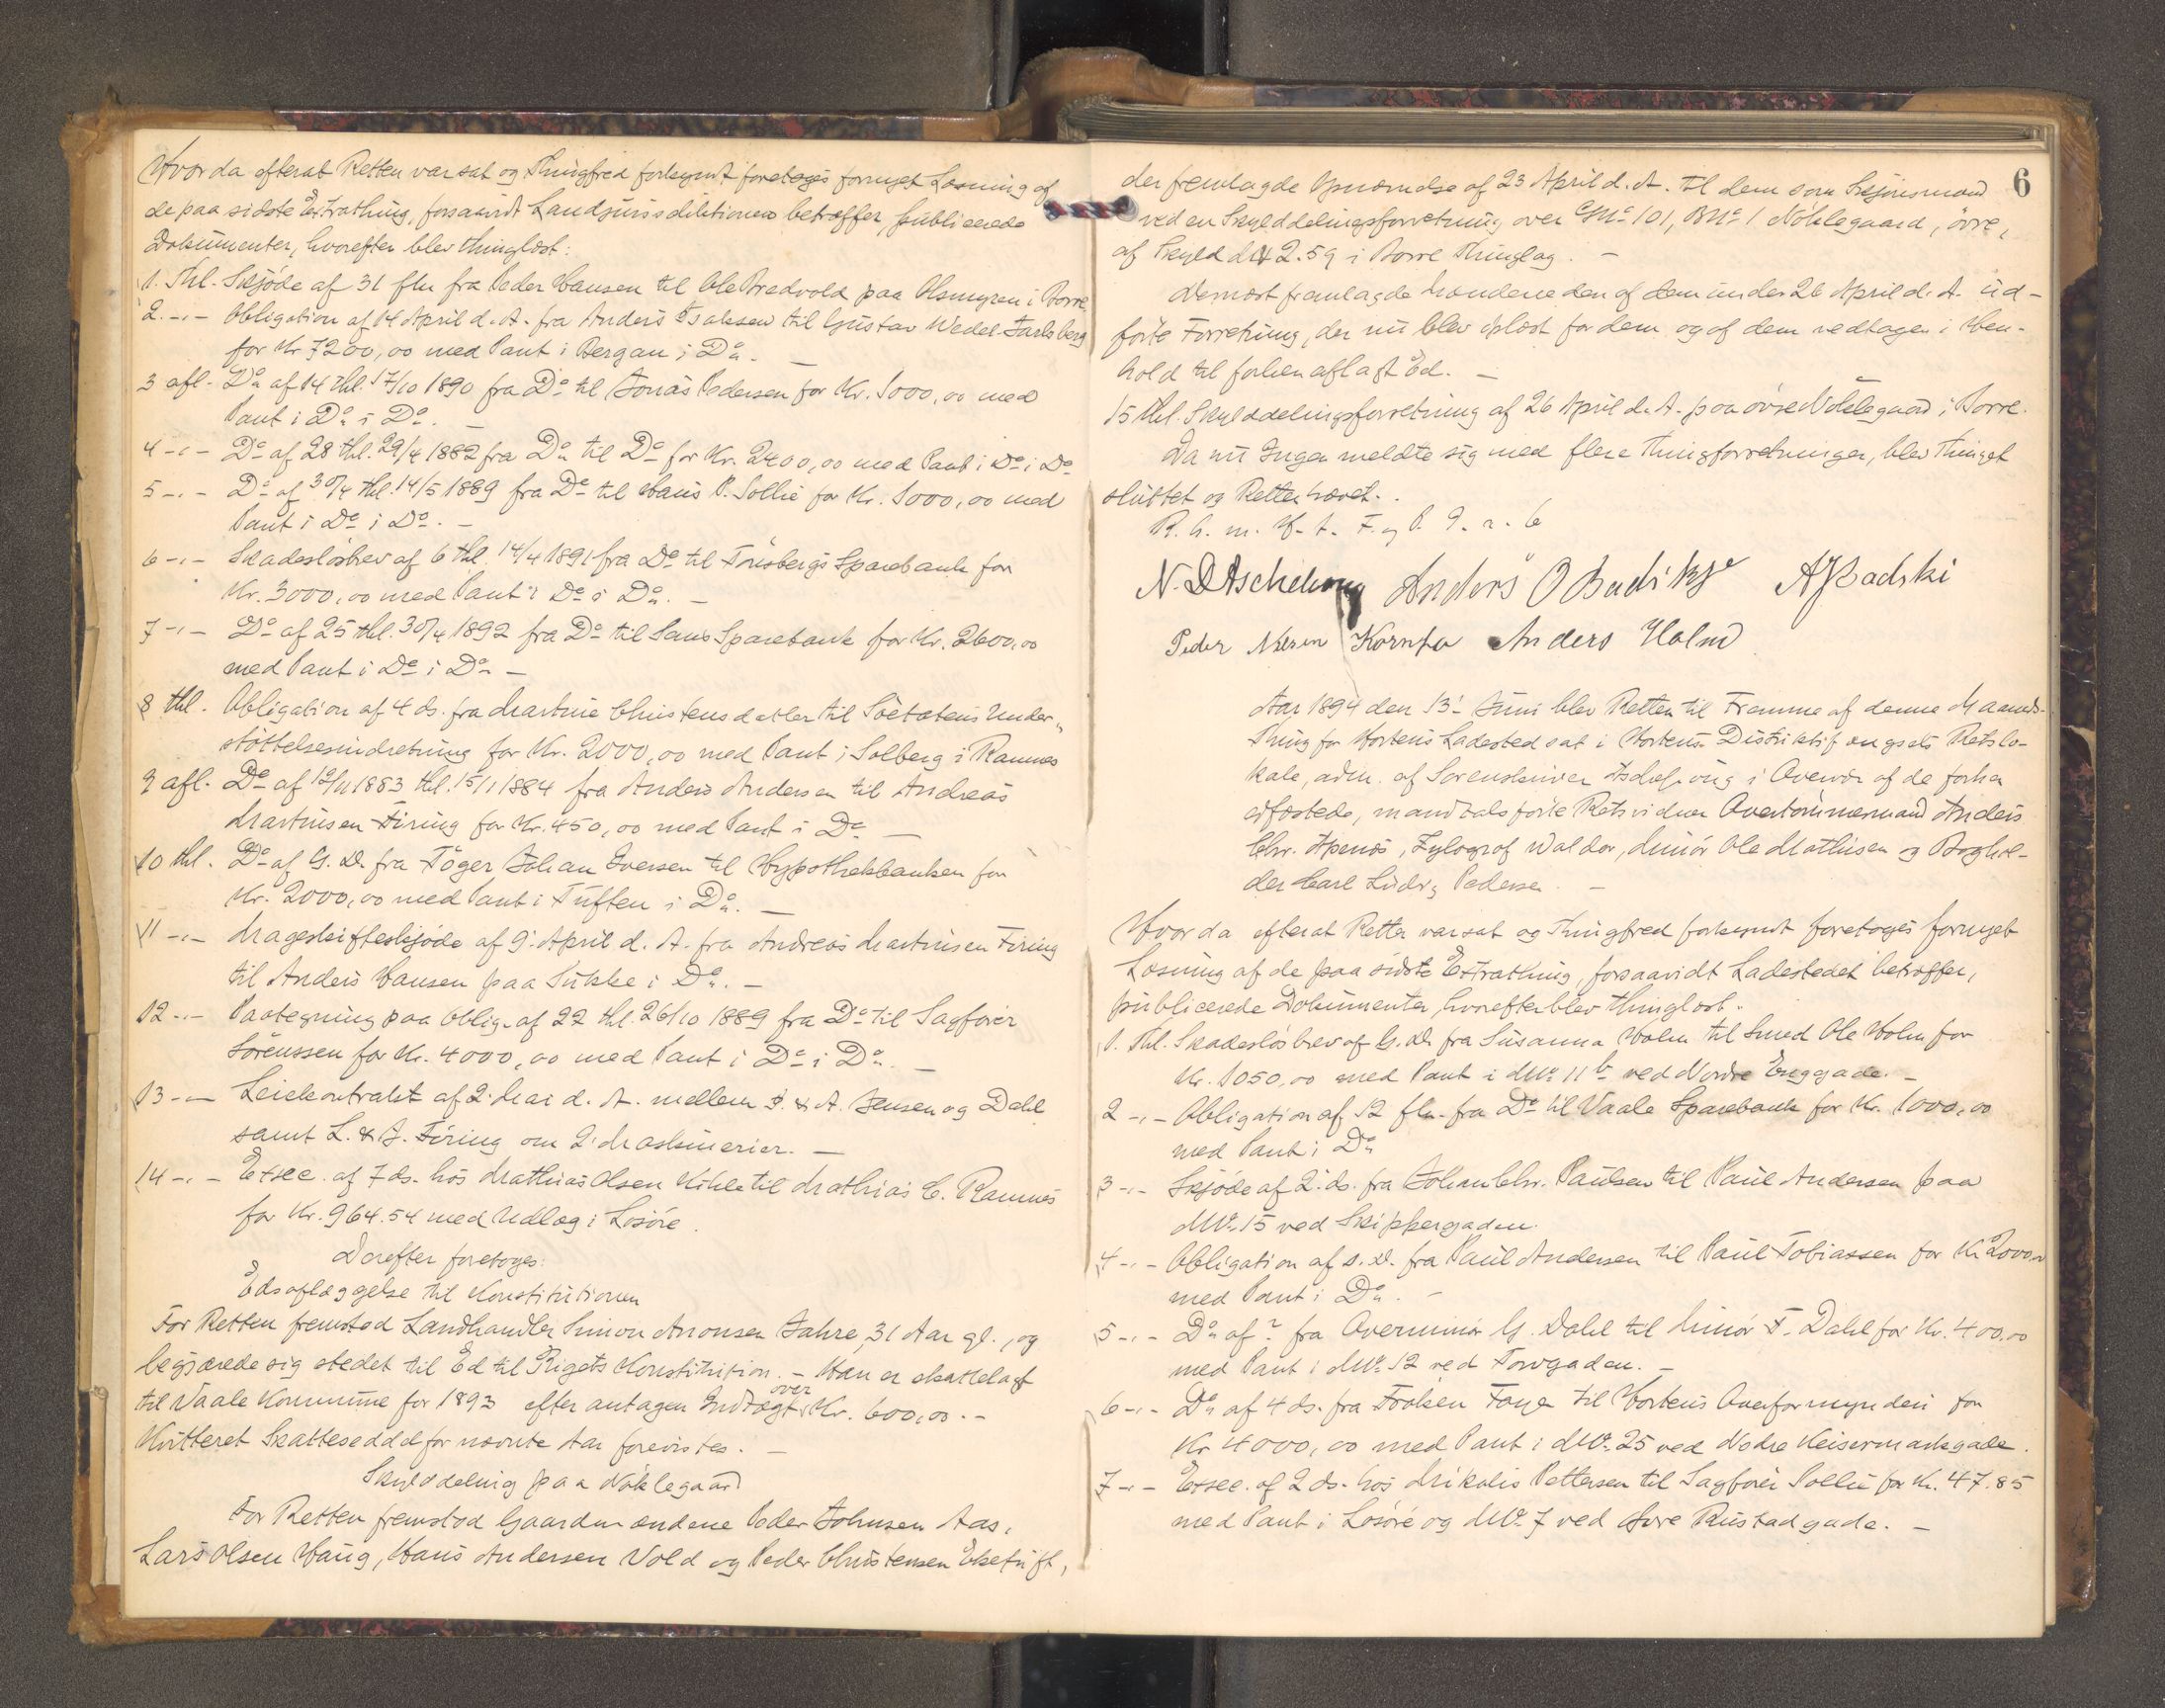 Hvorda efterat Retten var sat og Thingfred forkyndt foretoges fornyet Læsning af
de paa sidste Extrathing, forsaavidt Landjurisdiktionen betræffer, publicerede
Dokumenter, hvorefter blev thinglæst:
1. Thl. Skjøde af 31 fM fra Peder Hansen til Ole Bredvold paa Olsmyren i Borre
2. -,- Obligation af 14 April d. A. fra Anders Isaksen til Gustav Wedel-Jarlsberg
for Kr 7200,00 med Pant i Bergan i Do. -
3 afl. Do af 14 thl. 17/10 1890 fra Do til Jonas Pedersen for Kr. 1000,00 med
Pant i Do i Do. -
4 -,- Do af 28 thl. 29/4 1882 fra Do til Do for Kr. 2400,00 med Pant i Do i Do
5 -,- Do af 30/4 thl. 14/5 1889 fra Do til Hans P. Sollie for Kr. 1000,00 med
Pant i Do i Do. -
6 -,- Skadesløsbrev af 6 thl. 14/4 1891 fra Do til Tönsbergs Sparebank for
Kr. 3000,00 med Pant i Do i Do. -
7 -,- Do af 25 thl. 30/4 1892 fra Do til Sems Sparebank for Kr. 2600,00
med Pant i Do i Do -
8 thl. Obligation af 4 ds. fra Martine Christensdatter til Søetatens Under-
støttelsesindretning for Kr. 2000,00 med Pant i Solberg i Ramnes
9 afl. Do af 12/11 1883 thl. 15/1 1884 fra Anders Andersen til Andreas
Martinsen Firing for Kr. 450,00 med Pant i Do -
10 thl. Do af G. D. fra Töger Johan Iversen til Hypothekbanken for
Kr. 2000,00 med Pant i Tuften i Do. -
11 -,- Mageskifteskjøde af 9 April d. A. fra Andreas Martinsen Firing
til Anders Hansen paa Sukke i Do. -
12 -,- Paategning paa Oblig. af 22 thl. 26/10 1889 fra Do til Sagfører
Sörenssen for Kr. 4000,00 med Pant i Do i Do. -
13 -,- Leiekontrakt af 2 Mai d. A. mellem S. & A. Jensen og Dahl
samt L. & J. Firing om 2 Maskinerier. -
14 -,- Exsec. af 7 ds. hos Mathias Olsen Kihle til Mathias C. Ramnes
for Kr. 964.54 med Udlæg i Løsøre.
Derefter foretoges:
Edsaflæggelse til Konstitutionen
For Retten fremstod Landhandler Simon Aronsen Jahre, 31 Aar gl., og
begjærede sig stedet til Ed til Rigets Konstitution. - Han er skattelagt
til Vaale Kommune for 1893 efter antagen Indtægt over Kr. 600,00. -
Kvitteret Skatteseddel for nævnte Aar forevistes. -
Skylddeling paa Nøklegaard
For Retten fremstod Gaardmændene Peder Johnsen Aas,
Lars Olsen Haug, Hans Andersen Vold og Peder Christensen Eketuft,
6
der fremlagde Opnævnelse af 23 April d. A. til dem som Skjønsmænd
ved en Skylddelingsforretning over GNo 101, BNo 1 Nøklegaard, øvre,
af Skyld M 2.59 i Borre Thinglag. -
Dernæst fremlagde Mændene den af dem under 26 April d. A. ud-
førte Forretning, der nu blev oplæst for dem og af dem vedtagen i Hen-
hold til forhen aflagt Ed. -
15 thl. Skylddelingsforretning af 26 April d. A. paa øvre Nøklegaard i Borre.
Da nu Ingen meldte sig med flere Thingforretninger, blev Thinget
sluttet og Retten hævet.
R. h. m. H. A. F. og P. 9. r. 6
N. D Aschehoug Anders O Badsky A Badski
Peder Nilsen Anders Holm
Aar 1894 den 13 Juni blev Retten til Fremme af denne Maaneds
Thing for Hortens Ladested sat i Hortens Distriktsfængsels Retslo-
kale, adm. af Sorenskriver Aschehoug i Overvær af de forhen
edfæstede, mandtalsførte Retsvidner Overtømmermand Anders
Chr. Apenæs, Xylograf Walder, Minør Ole Mathisen og Boghol-
der Carl Ludvig Pedersen. -
Hvorda efterat Retten var sat og Thingfred forkyndt foretoges fornyet
Læsning af de paa sidste Extrathing, forsaavidt Ladestedet betræffer,
publicerede Dokumenter, hvorefter blev thinglæst:
1. Thl. Skadesløsbrev af G. D. fra Susanna Holm til Smed Ole Holm for
Kr. 1050,00 med Pant i MNo 11 b ved Nordre Enggade. -
2 -,- Obligation af 12 fM. fra Do til Vaale Sparebank for Kr. 1000,00
med Pant i Do
3 -,- Skjøde af 2 ds. fra Johan Chr. Paulsen til Paul Andersen paa
MNo 15 ved Skippergaden.
4 -,- Obligation af s. D. fra Paul Andersen til Paul Tobiassen for Kr 2000,00
med Pant i Do. -
5 -,- Do af ? fra Overminør G. Dahl til Minør F. Dahl for Kr. 400,00
med Pant i MNo 12 ved Torvgaden. -
6 -,- Do af 4 ds. fra Frøken Foyn til Hortens Overformynderi for
Kr 4000,00 med Pant i MNo 25 ved Nedre Keisermarksgade.
7 -,- Exsec. af 2 ds. hos Mikalis Pettersen til Sagfører Sollie for Kr. 47.85
med Pant i Løsøre og MNo 7 ved Øvre Rustadgade. -